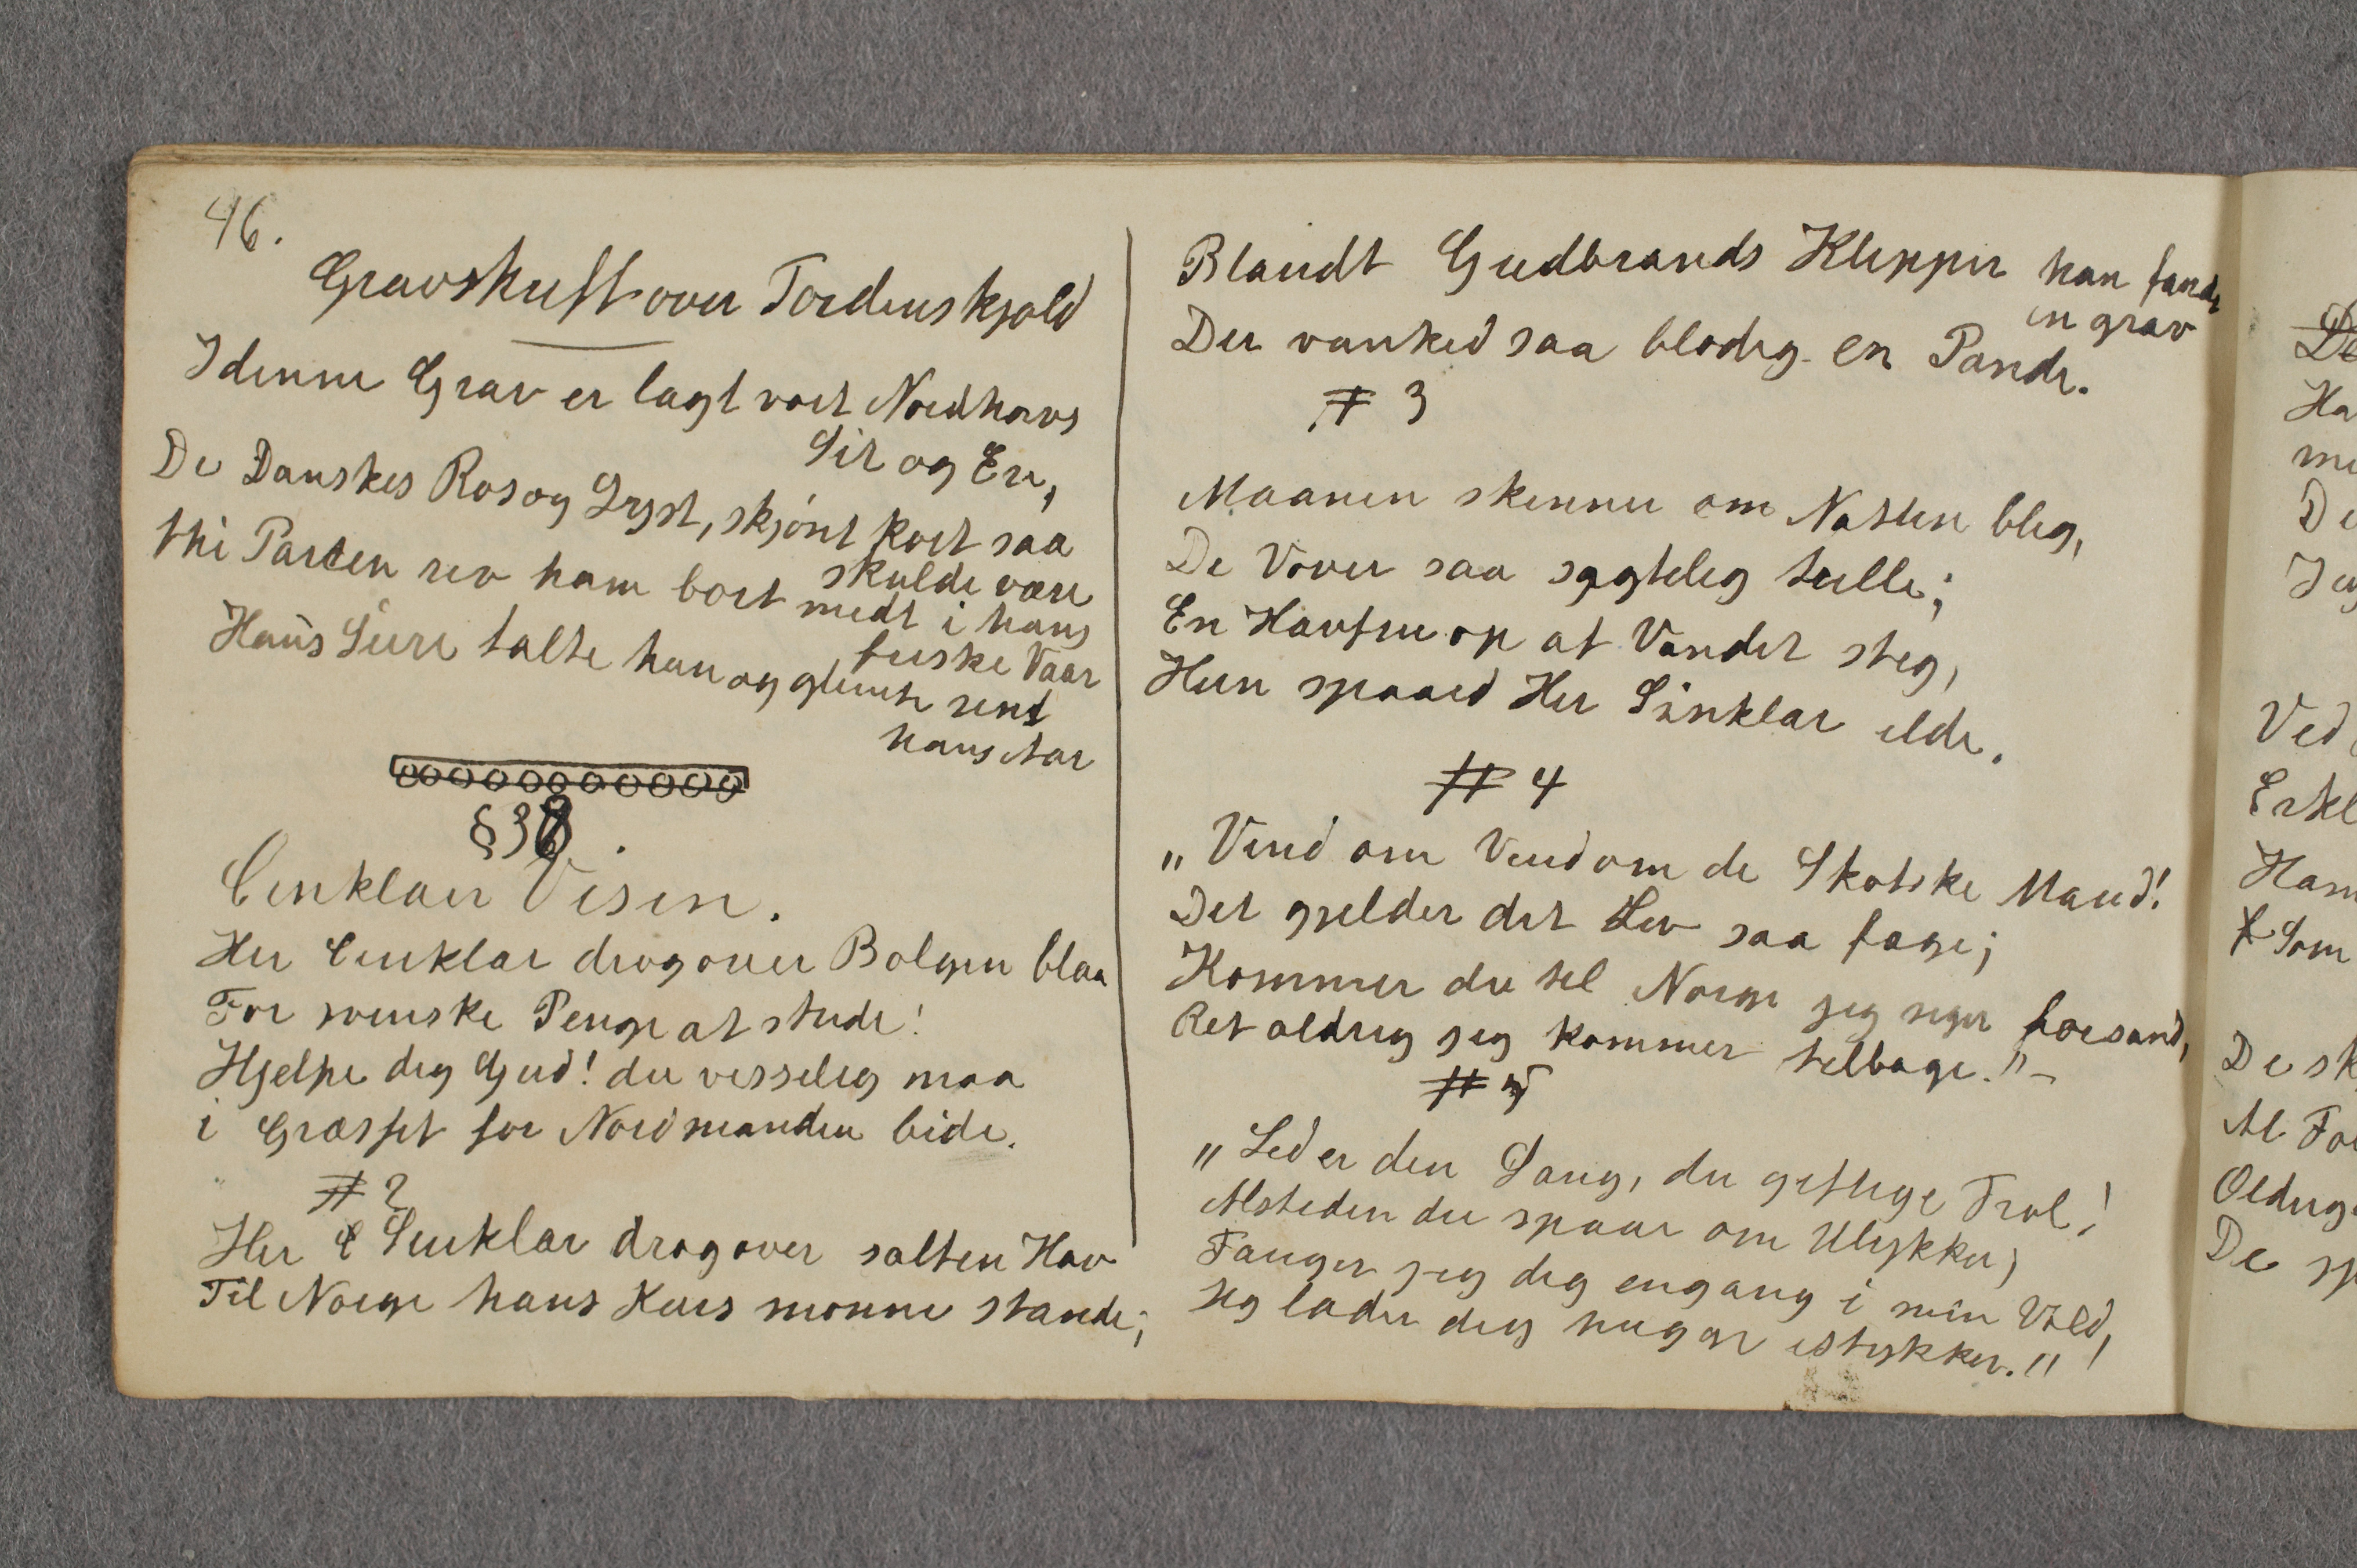 46.
Gravskrift over Tordenskjold
I denne Grav er lagt vort Nordhavs
Sir og Ere,
De Danskes Ros og Lyst, skjönt kort saa
skulde være
thi Parcen rev ham bort midt i hans
friske Vaar
Hans Seire talte hun og glemte rent
hans Aar
§ 38.
Cinklair Visen.
Her Cinklar drog over Bolgen blaa
For svenske Penge at stride!
Hjelpe dig Gud! du visselig maa
i Græsset for Nordmanden bide.
# 2
Her Sinklar drog over salten Hav
Til Norge hans Kurs monne stande;
Blandt Gudbrands Klipper han fandt
en grav
Der vanked saa blodig en Pande.
# 3
Maanen skinner om Natten bleg,
De Vover saa sagtelig trille;
En Havfru op af Vandet steg,
Hun spaaed Her Sinklar ilde.
# 4
„Vend om Vend om de Skotske Mand!
Det gjelder dit Liv saa fage;
Kommer du til Norge jeg siger forsand,
Ret aldrig jeg kommer tilbage." -
# 5
„Led er den Sang, du giftige Trol!
Alstiden du spaar om Ulykker,
Fanger jeg dig engang i min Vold,
Jeg lader dig hugge istykker."!
De
Ha
me
De
Jeg
Ved
Erkl
Ham
Som
De sk
Al For
Oldrig
De sp